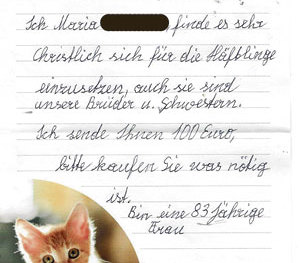 Ich Maria , finde es sehr
Christlich sich für die Häftlinge
einzusetzen, auch sie sind
unsere Brüder u. Schwestern.
Ich sende Ihnen 100 Euro,
bitte kaufen Sie was nötig
ist.
Bin eine 83 jährige
Frau